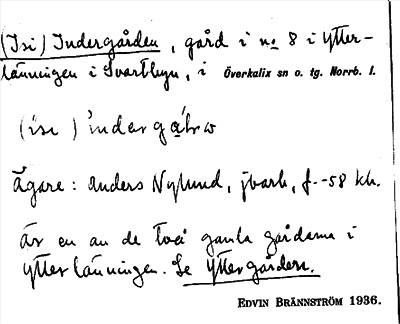 (Isi) Indergården, gård i no 8 i Ytter-
länningen i Svartbyn, i Överkalix sn o. tg. Norrb. l.
Ägare: Anders Nylund, jbark, f. -58 kh.
är en av de två gamla gårdarna i
Ytterlänningen. Se Yttergården.
EDVIN BRÄNNSTRÖM 1936.